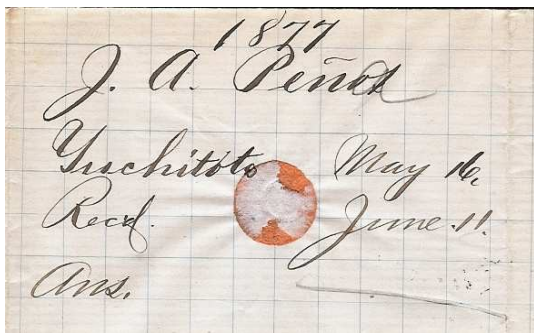 1877
J. A.
Suchitoto May 16,
Recd. June 11.
Ans.